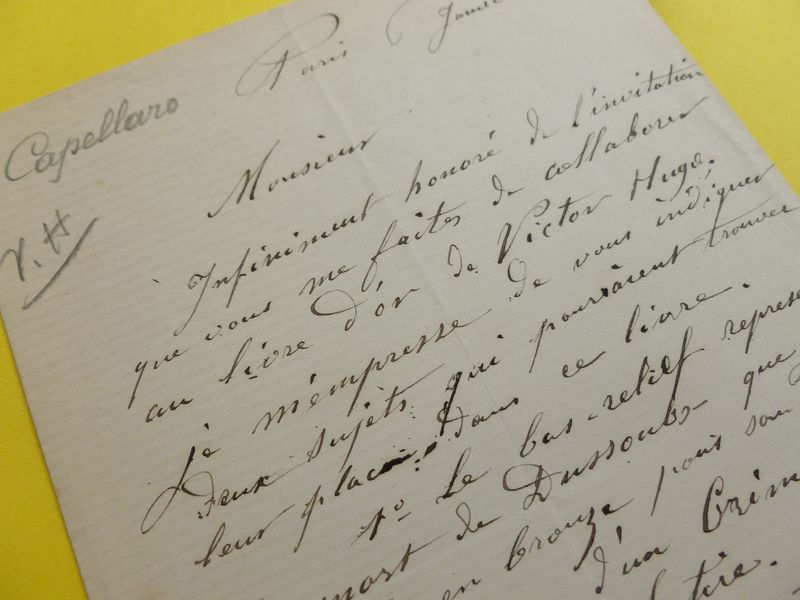 Capellaro
V. H
Paris
Monsieur
Infiniment honoré de l'invitation
que vous me faites de collaborer
au livre d'or de Victor Hugo.
Je m'empresse de vous indiquer
deux sujets qui pourraient trouver
leur places dans ce livre.
1º Le bas-relief représe
mort de Dussoubs que
en bronze pour son
d'un Crim